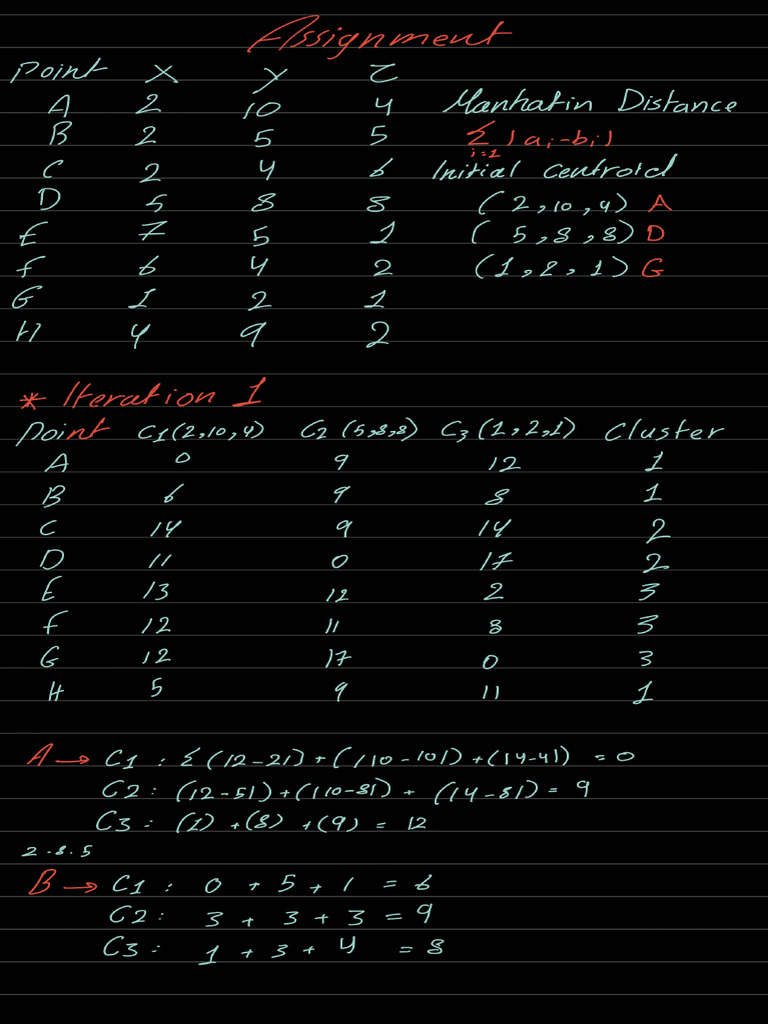 Assignment
Point X Y Z
A 2 10 4 Manhatin Distance
B 2 5 5 Σ i=1 |ai-bi|
C 2 4 6 Initial Centroid
D 5 8 8 (2,10,4) A
E 7 5 1 (5,8,8) D
F 6 4 2 (1,2,1) G
G 1 2 1
H 4 9 2
* Iteration 1
Point C1(2,10,4) C2 (5,8,8) C3(1,2,1) Cluster
A 0 9 12 1
B 6 9 8 1
C 14 9 14 2
D 11 0 17 2
E 13 12 2 3
F 12 11 8 3
G 12 17 0 3
H 5 9 11 1
A → C1 : Σ(|2-2|)+(|10-10|)+(|4-4|) = 0
C2: (|2-5|)+(|10-8|)+ (|4-8|) = 9
C3: (1) +(8) +(9) = 12
2.8.5
B → C1 : 0 + 5 + 1 = 6
C2: 3 + 3 + 3 = 9
C3: 1 + 3 + 4 = 8